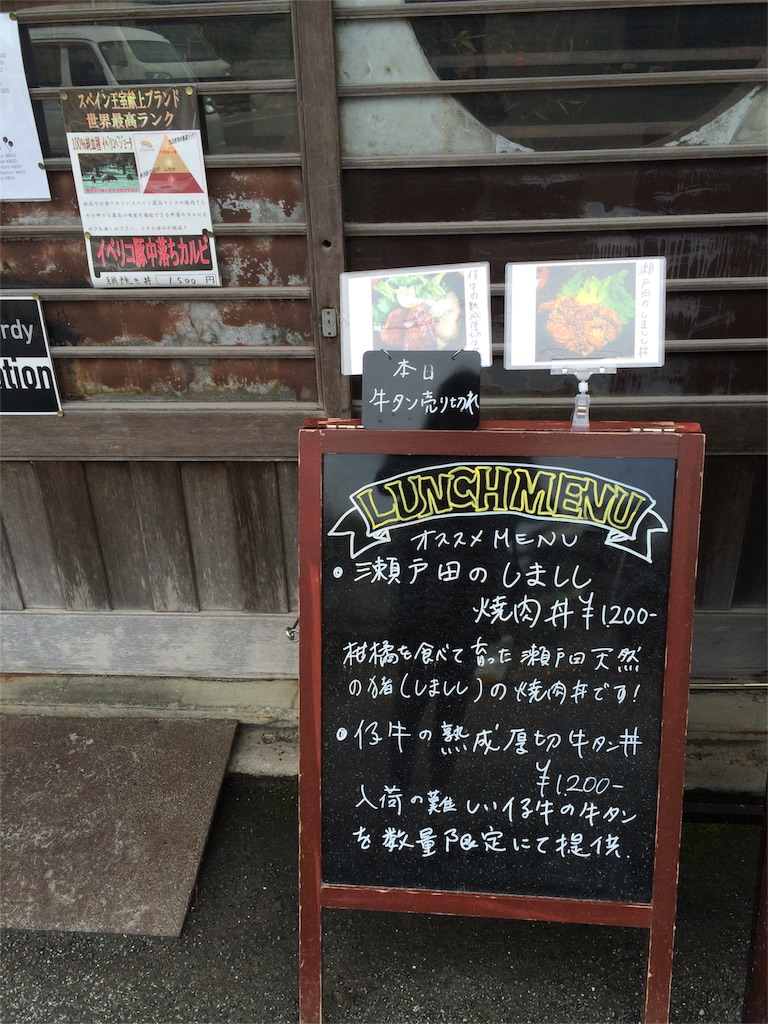 スペイン王室献上ブランド
世界最高ランク
イベリコ豚中落ちカルビ
網焼き丼 1,500円
rdy
tion
瀬戸田のしましし丼
本日
牛タン売り切れ
LUNCH MENU
オススメMENU
・瀬戸田のしましし
焼肉丼¥1200-
柑橘を食べて育った瀬戸田天然
の猪(しましし)の焼肉丼です!
・仔牛の熟成厚切牛タン丼
¥1200-
入荷の難しい仔牛の牛タン
を数量限定にて提供.